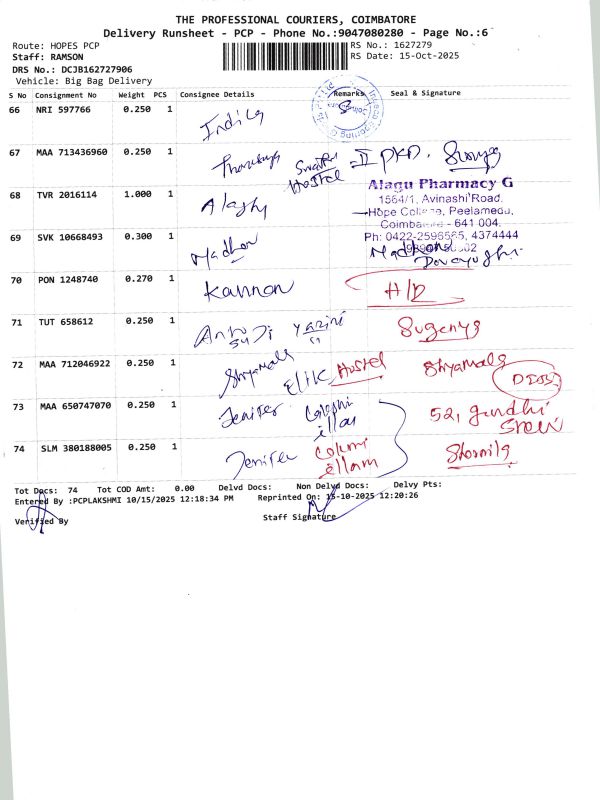 THE PROFESSIONAL COURIERS, COIMBATORE
Delivery Runsheet - PCP - Phone No.:9047080280 - Page No.:6
Route: HOPES PCP RS No.: 1627279
Staff: RAMSON RS Date: 15-Oct-2025
DRS No.: DCJB162727906
Vehicle: Big Bag Delivery
S No Consignment No Weight PCS Consignee Details Remarks Seal & Signature
66 NRI 597766 0.250 1
67 MAA 713436960 0.250 1 Hostel
68 TVR 2016114 1.000 1
Alagu Pharmacy G
1564/1, Avinashi Road,
Hope College, Peelamedu,
Coimbatore - 641 004.
Ph: 0422-2596565, 4374444
69 SVK 10668493 0.300 1 Madhan Madhan
70 PON 1248740 0.270 1 Kannan H/D
71 TUT 658612 0.250 1 Sugenya
72 MAA 712046922 0.250 1 Shyamala Elite Hostel Shyamala
73 MAA 650747070 0.250 1 Jenifer illam 52, gandhi
74 SLM 380188005 0.250 1 Jenifer illam
Tot Docs: 74 Tot COD Amt: 0.00 Delvd Docs: Non Delvd Docs: Delvy Pts:
Entered By :PCPLAKSHMI 10/15/2025 12:18:34 PM Reprinted On: 15-10-2025 12:20:26
Verified By Staff Signature